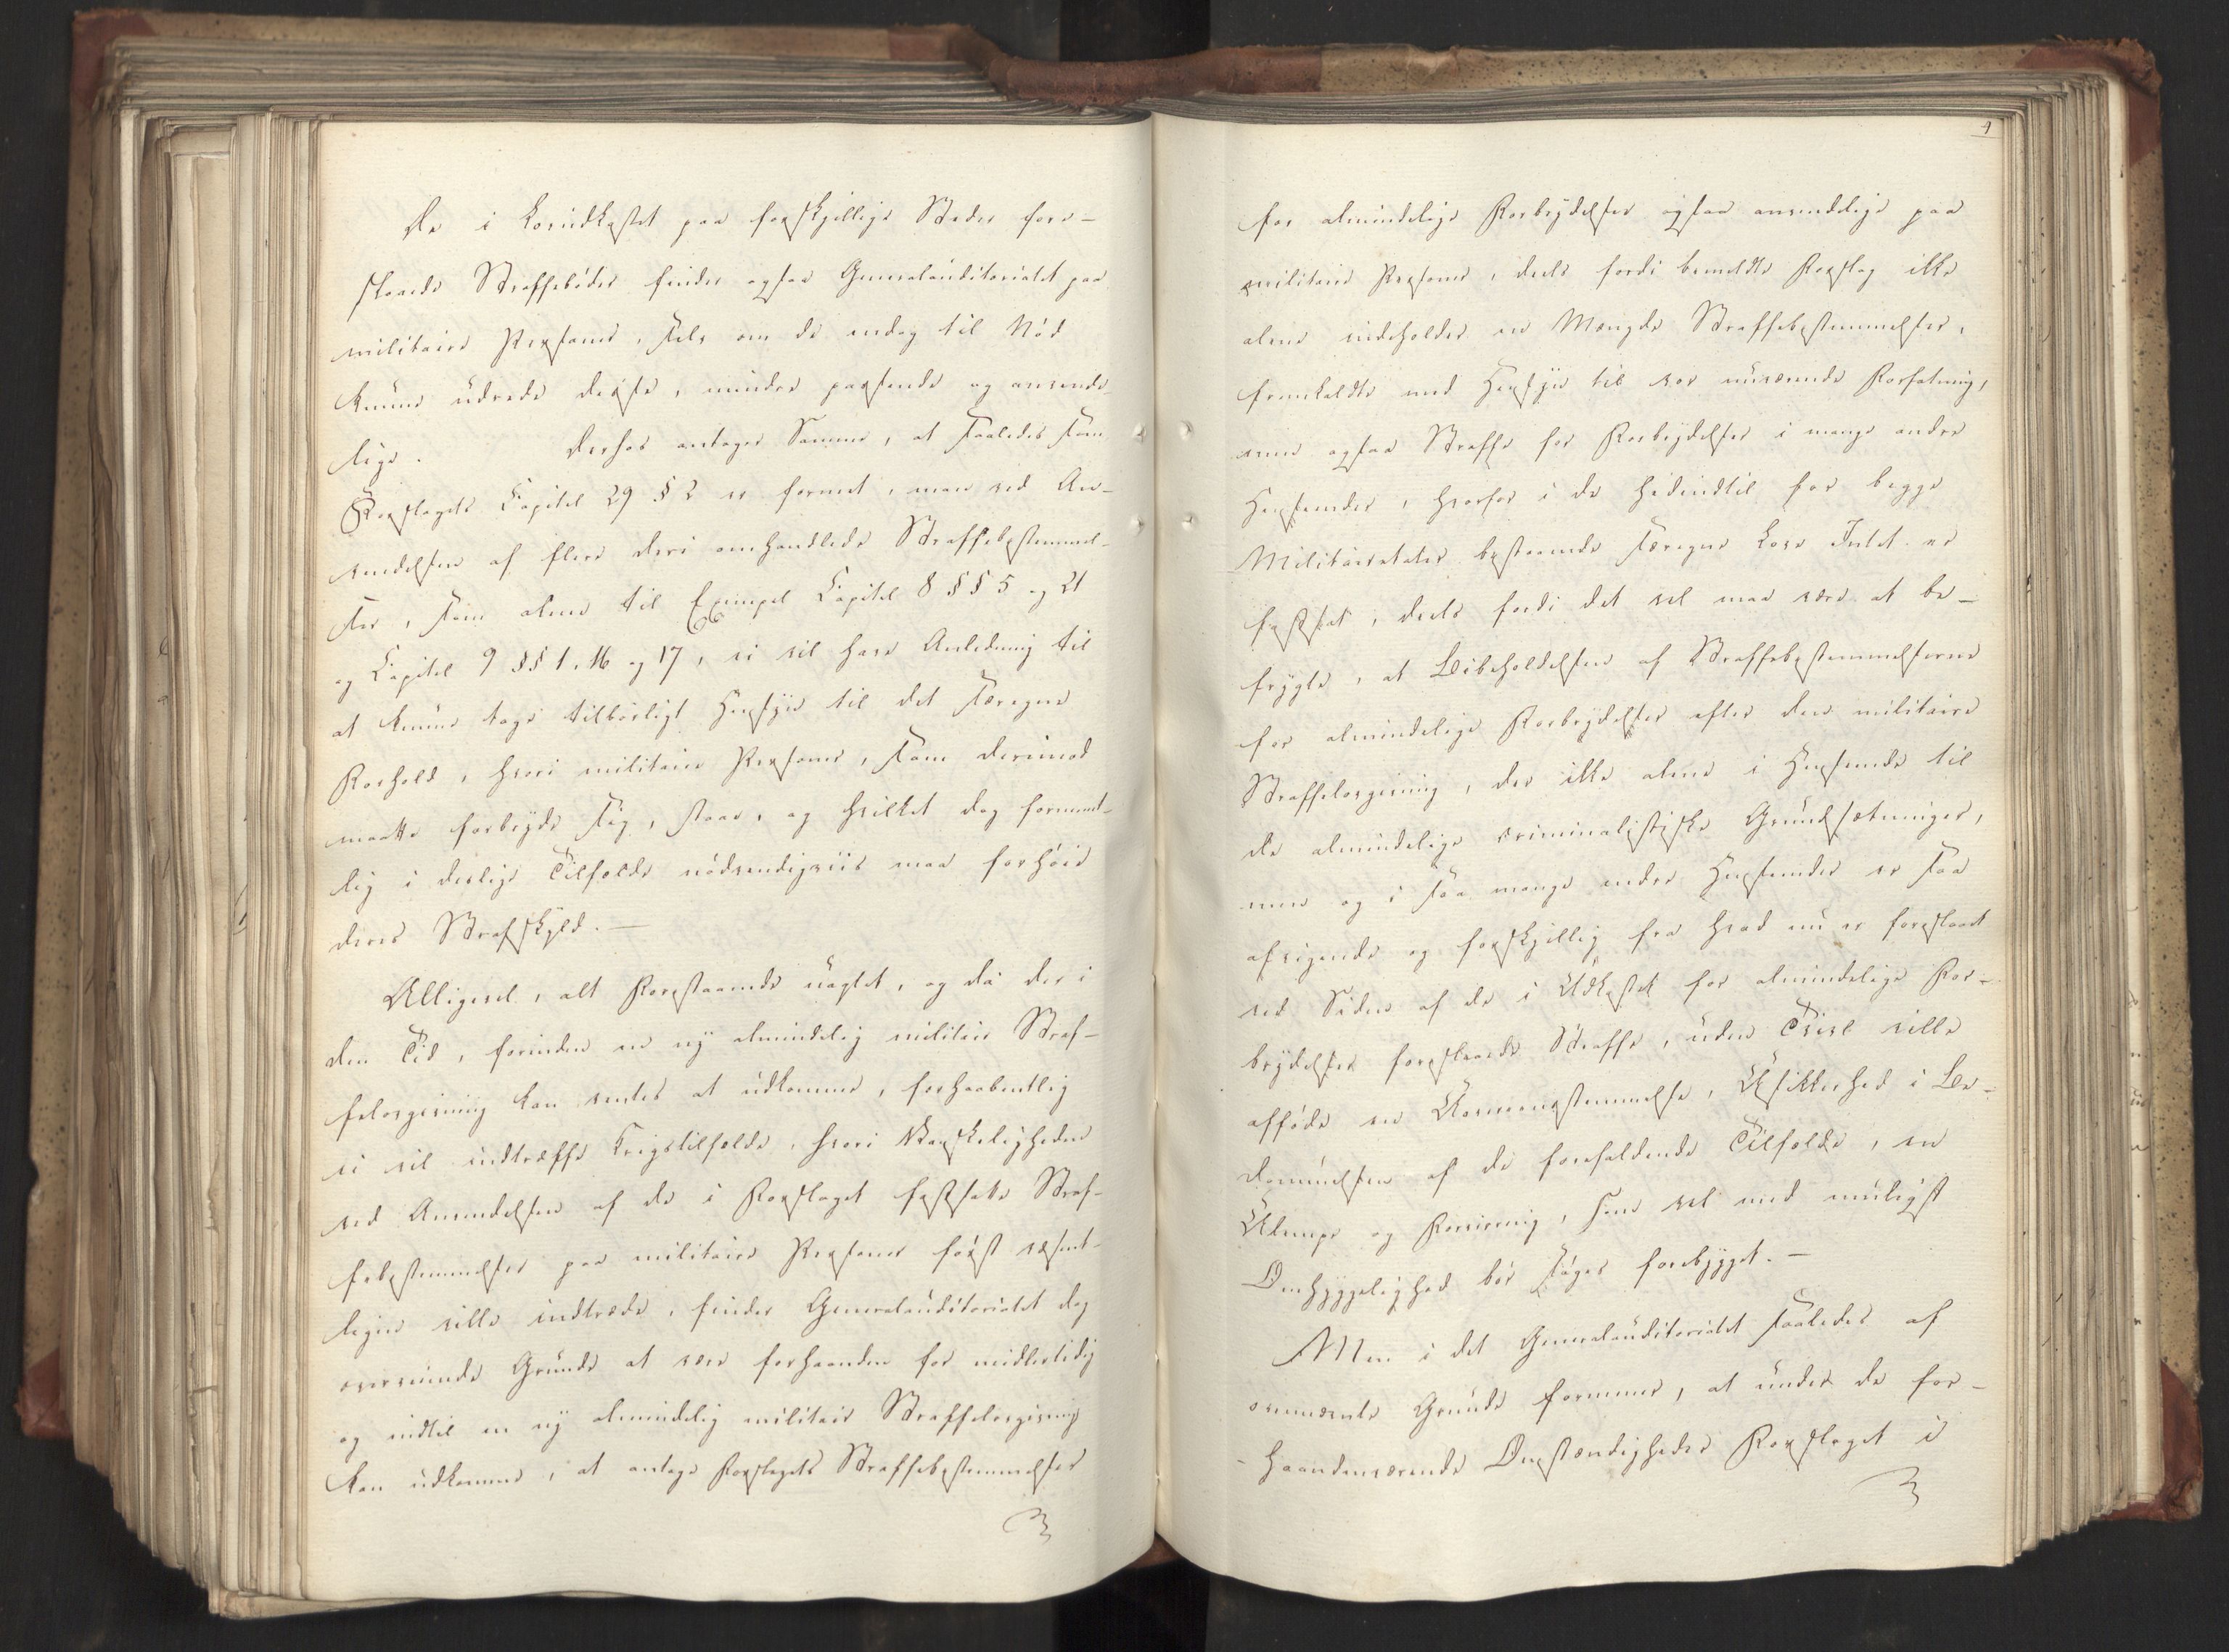 De i Lovudkastet paa forskjellige Steder fore-
slaaede Straffebøder finder ogsaa Generalauditoriatet paa
militaire Personer, selv om de endog til Nød
kunne udrede disse, mindre passende og anvende-
lige. Derhos antager Samme, at saaledes som
Forslagets Capitel 29 § 2 er formet, man ved An-
vendelsen af flere deri omhandlede Straffebestemmel-
ser, som alene til Exempel Capitel 8 §§ 5 og 21
og Capitel 9 §§ 1, 16 og 17, ei vil have Anledning til
at kunne tage tilbørligt Hensyn til det særegne
Forhold, hvori militaire Personer, som derimod
maatte forbryde sig, staae, og hvilket dog forment-
lig i deslige Tilfælde nødvendigviis maa forhøie
deres Strafskyld. —
Alligevel, alt Forestaaende uagtet, og da der i
den Tid, forinden en ny almindelig militair Straf-
felovgivning kan ventes at udkomme, forhaabentlig
ei vil indtræffe Krigstilfælde, hvori Vanskeligheden
ved Anvendelsen af de i Forslaget fastsatte Straf-
febestemmelser paa militaire Personer først væsent-
ligen ville indtræde, finder Generalauditoriatet dog
overveiende Grunde at være forhaanden for midlertidig
og indtil en ny almindelig militair Straffelovgivning
kan udkomme, at antage Forslagets Straffebestemmelser
4
for almindelige Forbrydelser ogsaa anvendelige paa
militaire Personer, deels fordi bemeldte Forslag ikke
alene indeholder en Mængde Straffebestemmelser,
fremkaldte med Hensyn til vor nuværende Forfatning,
men ogsaa Straffe for Forbrydelser i mange andre
Henseender, hvorfor i de hidindtil for begge
Militairetater bestaaende særegne Love Intet er
fastsat, deels fordi det vel maa være at be-
frygte, at Bibeholdelsen af Straffebestemmelserne
for almindelige Forbrydelser efter den militaire
Straffelovgivning, der ikke alene i Henseende til
de almindelige criminalistiske Grundsætninger,
men og i saa mange andre Henseender er saa
afvigende og forskjellig fra hvad nu er foreslaaet
ved Siden af de i Udkastet for almindelige For-
brydelser foreslaaede Straffe, uden Tvivl ville
afføde en Uoverensstemmelse, Usikkerhed i Be-
dømmelsen af de forefaldende Tilfælde, en
Ulempe og Forvirring, som vel med muligst
Omhyggelighed bør søges forebygget. —
Men i det Generalauditoriatet saaledes af
ovennævnte Grunde formener, at under de for-
haandenværende Omstændigheder Forslaget i